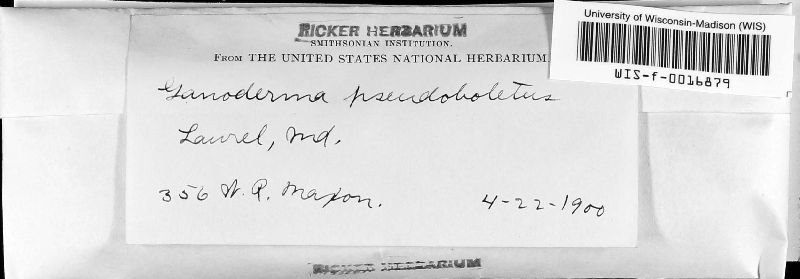 RICKER HERBARIUM
SMITHSONIAN INSTITUTION.
FROM THE UNITED STATES NATIONAL HERBARIUM.
University of Wisconsin-Madison (WIS)
WIS-f-0016879
Ganoderma pseudoboletus
Laurel, Md.
356 W. R. Maxon. 4-22-1900
RICKER HERBARIUM